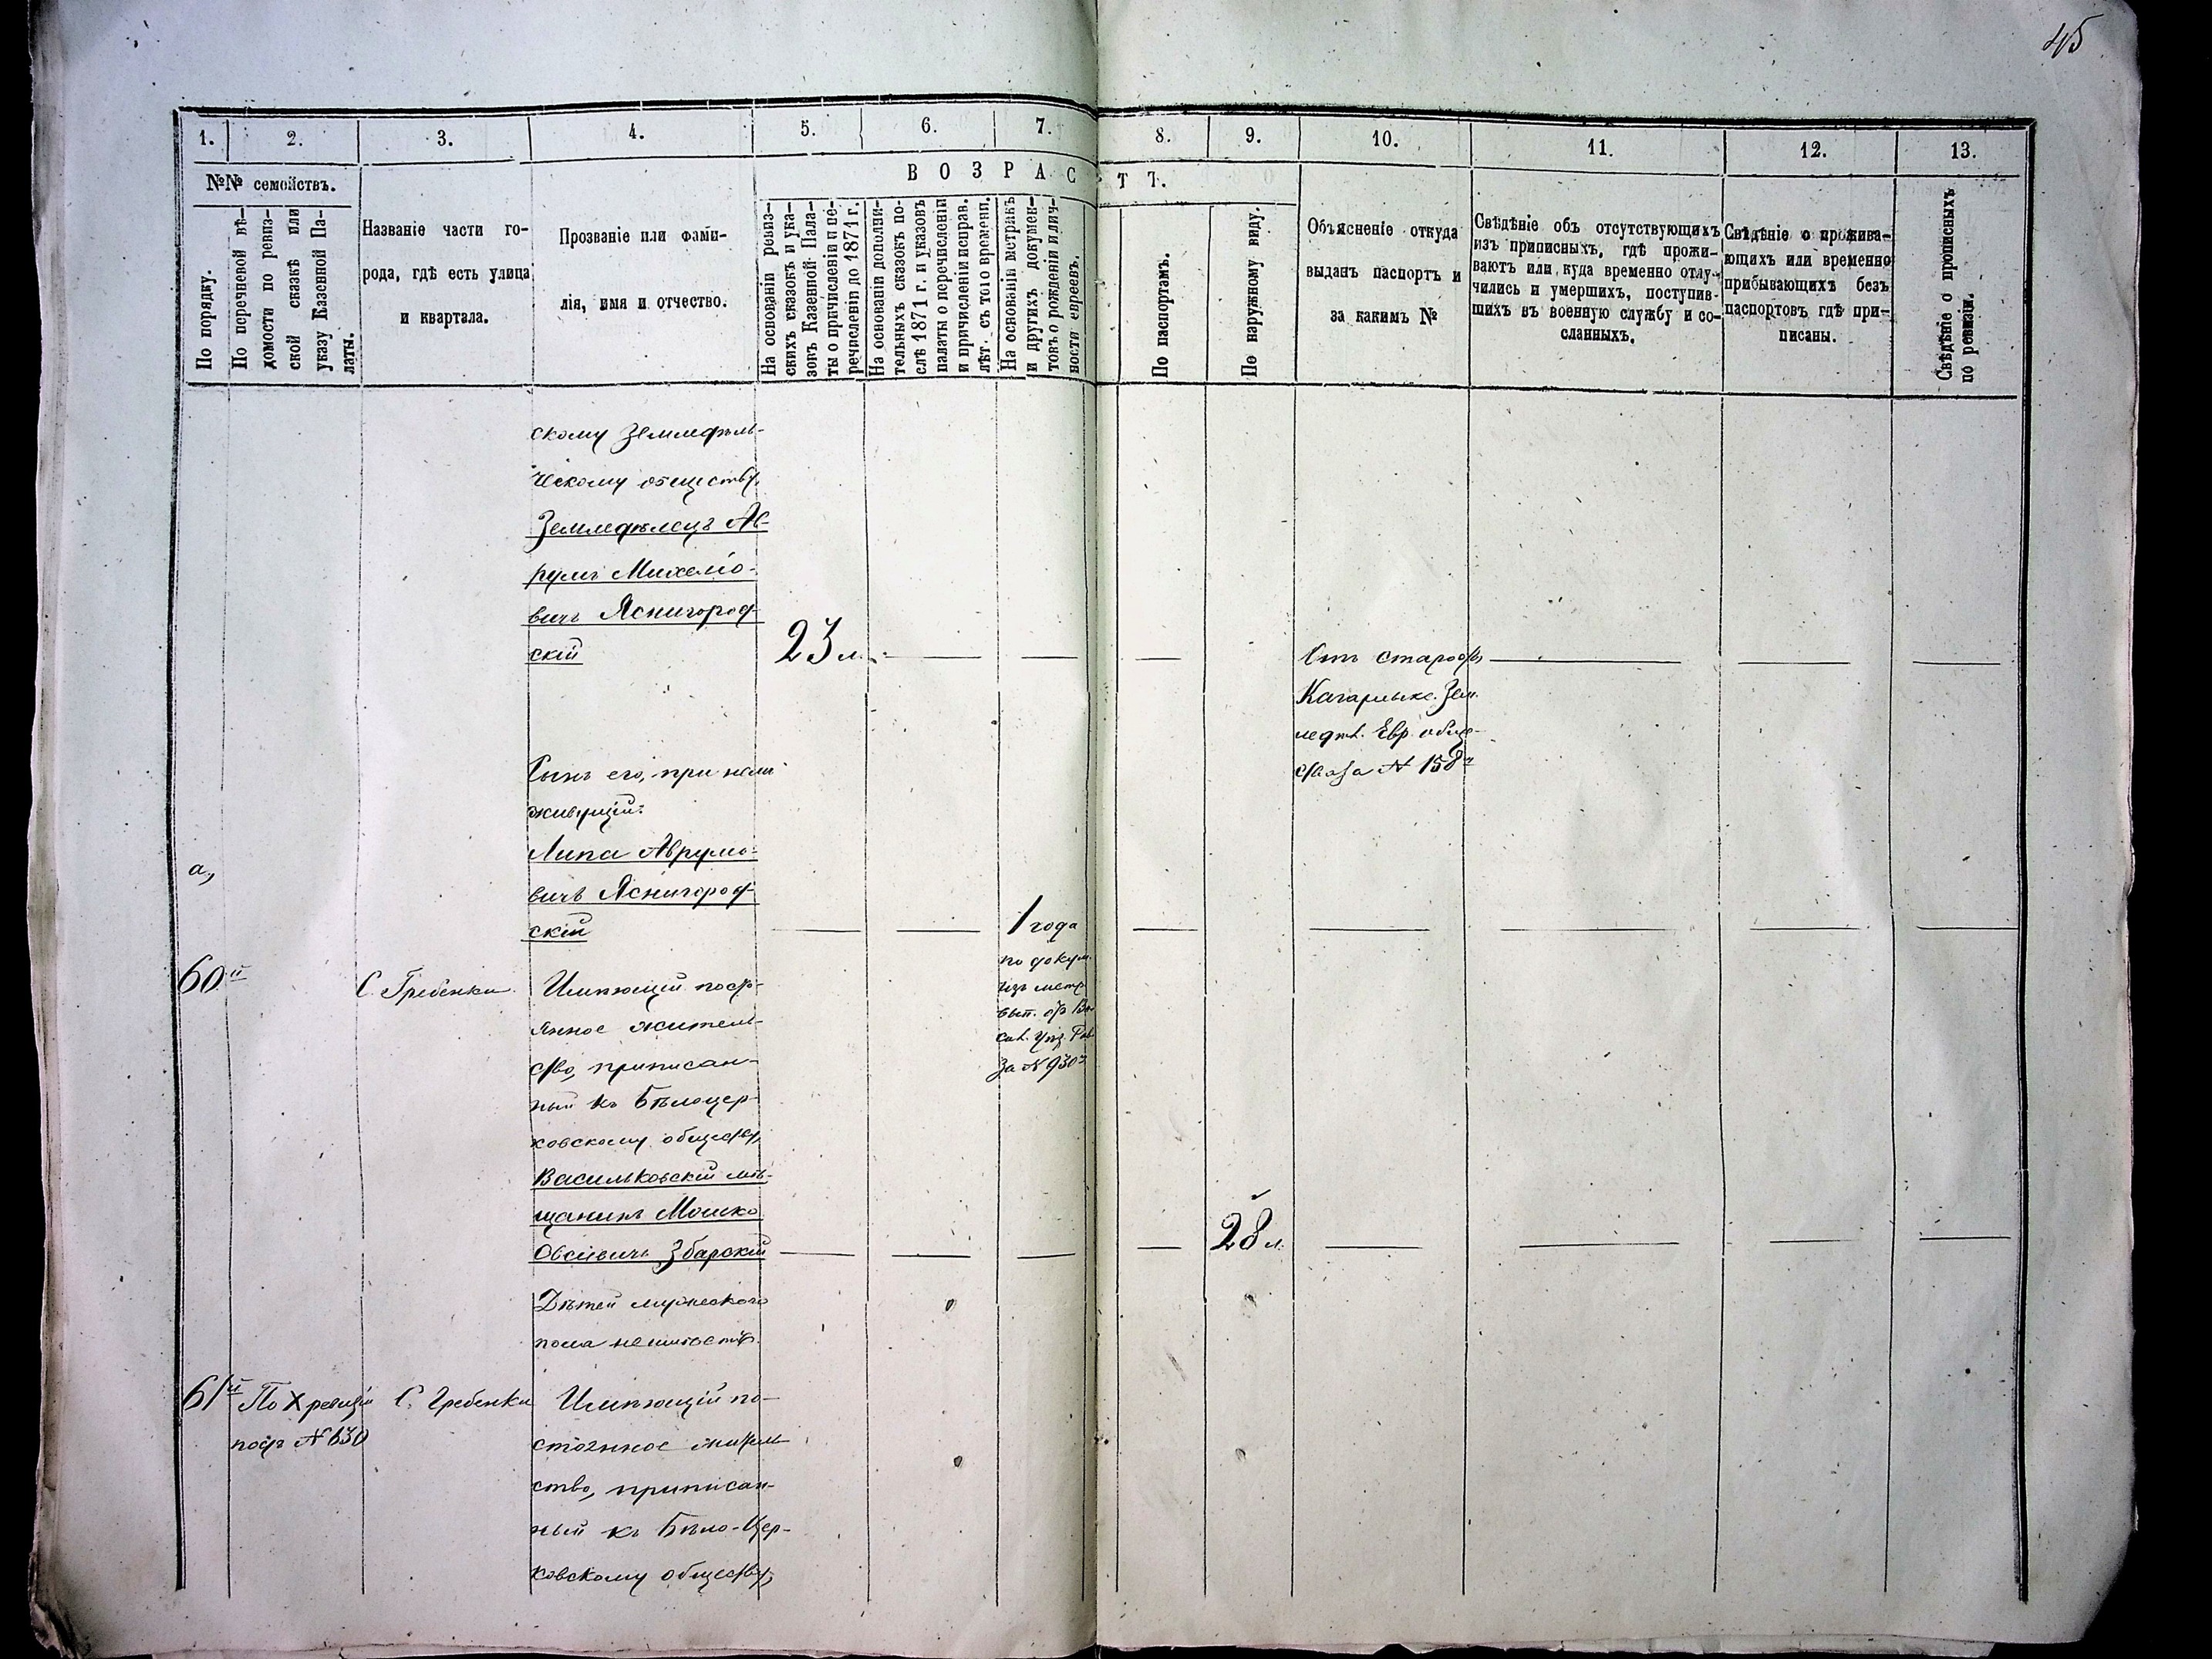 45
1. 2. 3. 4. 5. 6. 7. 8. 9. 10. 11. 12. 13.
№№ семействъ.
ВОЗРАСТЪ.
По порядку.
По перечневой вѣ-
домости по ревиз-
ской сказкѣ или
указу Казенной Па-
латы.
Названіе части го-
рода, гдѣ есть улица
и квартала.
Прозваніе или фами-
лія, имя и отчество.
На основаніи ревиз-
скихъ сказокъ и ука-
зовъ Казенной Пала-
ты о причисленіи и пе-
речисленіи до 1871 г.
На основаніи дополни-
тельныхъ сказокъ по-
слѣ 1871 г. и указовъ
палаты о перечисленіи
и причисленіи исправ.
лѣт. съ того времени.
На основаніи метрикъ
и другихъ докумен-
товъ о рожденіи и лич-
ности евреевъ.
По паспортамъ.
По наружному виду.
Объясненіе откуда
выданъ паспортъ и
за какимъ №
Свѣдѣніе объ отсутствующихъ
изъ приписныхъ, гдѣ прожи-
ваютъ или куда временно отлу-
чились и умершихъ, поступив-
шихъ въ военную службу и со-
сланныхъ.
Свѣдѣніе о прожива-
ющихъ или временно
прибывающихъ безъ
паспортовъ гдѣ при-
писаны.
Свѣдѣніе о прописныхъ
по ревизіи.
скому Земледѣль-
ческому обществу,
Земледѣлецъ Ав-
румъ Михеліо-
вичъ Ясногород-
скій
23 л.
Отъ старосты
Кагарлыкс. Зем-
ледѣл. Евр. обще-
ства за № 158
Сынъ его, при немъ
живущій:
а,
Липа Аврумо-
вичъ Ясногород-
скій
1 года
по докум.
изъ метр.
вып.
за № 930
60й
С. Гребенки.
Имѣющій посто-
янное житель-
ство, приписан-
ный къ Бѣлоцер-
ковскому обществу,
Васильковскій мѣ-
щанинъ Мошко
Овсіевичъ Збарскій
28 л.
Дѣтей мужескаго
пола неимѣетъ.
61й
По Х ревизіи
подъ № 630
С. Гребенки
Имѣющій по-
стоянное житель-
ство, приписан-
ный къ Бѣло-Цер-
ковскому обществу,